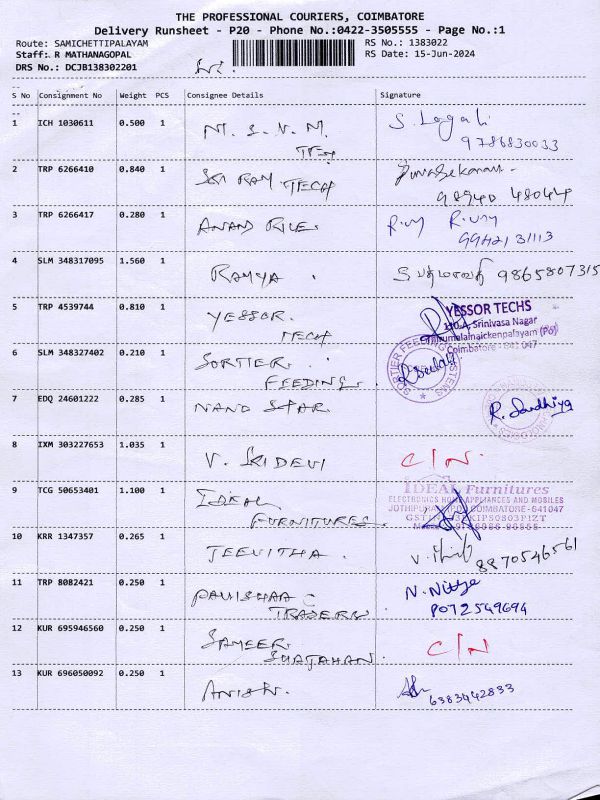 THE PROFESSIONAL COURIERS, COIMBATORE
Delivery Runsheet - P20 - Phone No.:0422-3505555 - Page No.:1
Route: SAMICHETTIPALAYAM RS No.: 1383022
Staff: R MATHANAGOPAL RS Date: 15-Jun-2024
DRS No.: DCJB138302201
S No Consignment No Weight PCS Consignee Details Signature
1 ICH 1030611 0.500 1 M. S. V. M.
9786830033
2 TRP 6266410 0.840 1 SRI RAM TECH
98940 48044
3 TRP 6266417 0.280 1 ANAND RICE.
9942131113
4 SLM 348317095 1.560 1 RAMYA. 9865807315
5 TRP 4539744 0.810 1 YESSOR. YESSOR TECHS
TECH Srinivasa Nagar
Coimbatore - 641 047
6 SLM 348327402 0.210 1 SORTIER. SORTIER FEEDING SYSTEMS
FEEDING.
7 EDQ 24601222 0.285 1 NAND STAR. R. Sandhiya
8 IXM 303227653 1.035 1 V. SRIDEVI C/N.
9 TCG 50653401 1.100 1 IDEAL IDEAL Furnitures
FURNITURES. ELECTRONICS HOME APPLIANCES AND MOBILES
COIMBATORE - 641047
10 KRR 1347357 0.265 1 JEEVITHA. 8870546561
11 TRP 8082421 0.250 1 N. Nithya
TRADERS
12 KUR 695946560 0.250 1 SAMEER. C/N
SHAJAHAN.
13 KUR 696050092 0.250 1 ANISH. 6383442833